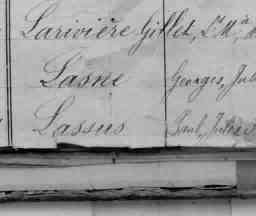 Larivière Gillet, L. M.
Lasne Georges, Jul
Lassus Paul, Jules